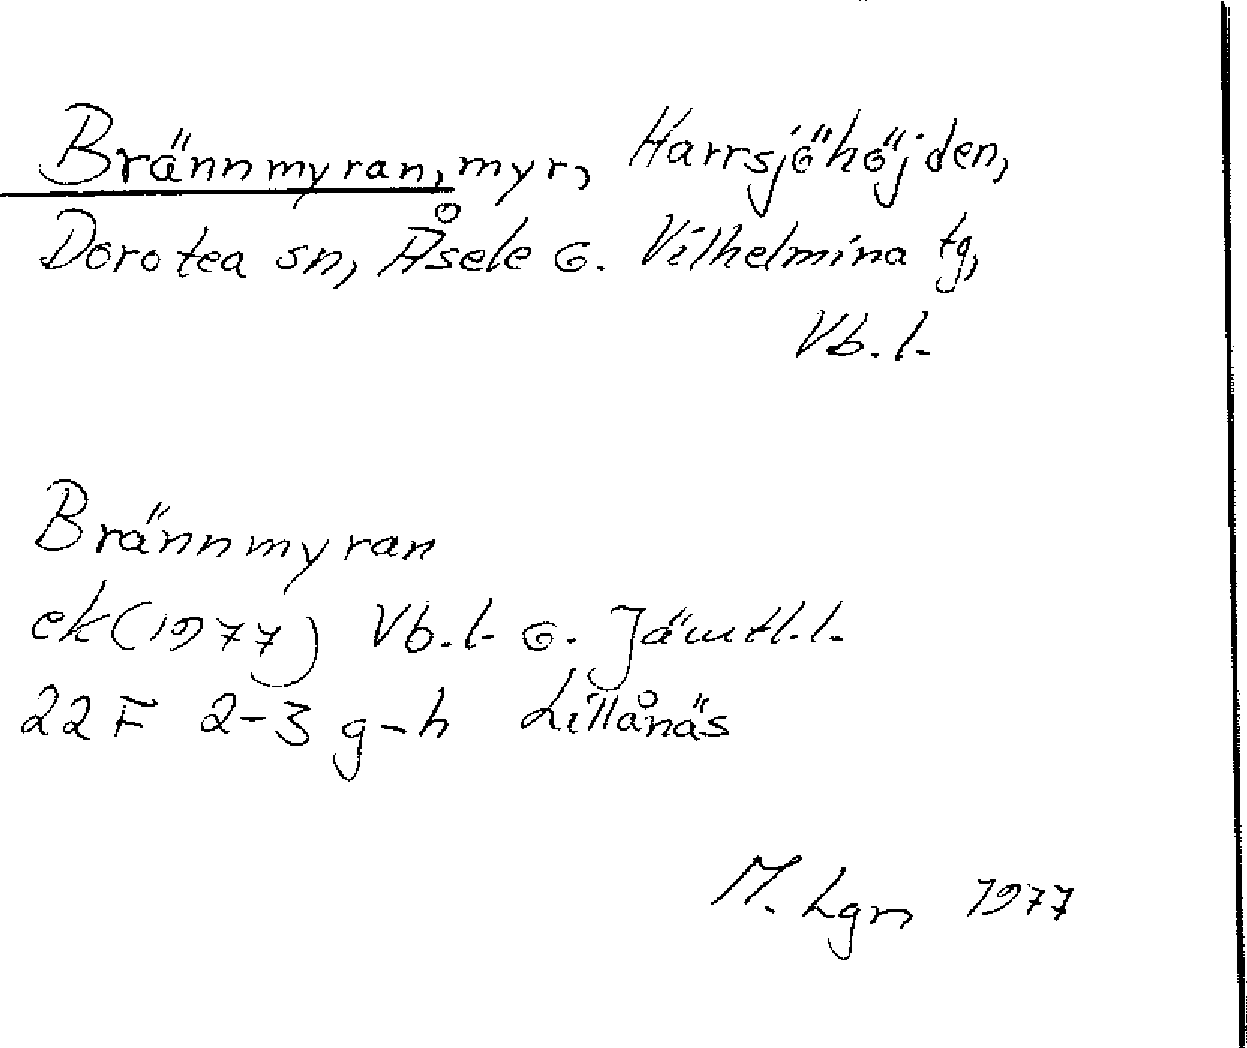 Brännmyran, myr, Harrsjöhöjden,
Dorotea sn, Åsele o. Vilhelmina tg,
Vb. l.
Brännmyran
ek (1977) Vb. l. o. Jämtl. l.
22 F 2-3 g-h Lillånäs
M. Lgn 1977